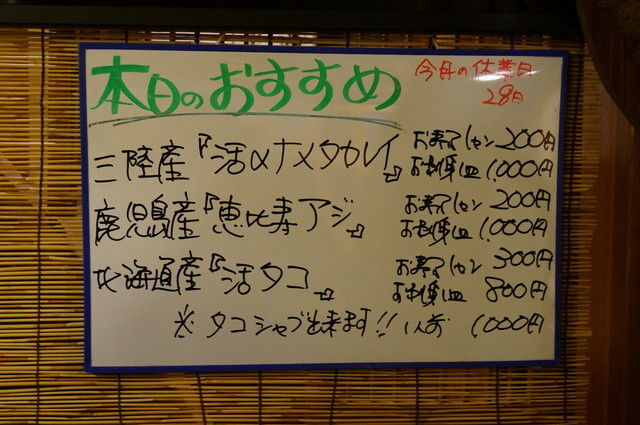 本日のおすすめ
今月の休業日
28日
三陸産『活〆ナメタカレイ』 お寿司1カン 200円
お刺身1皿 1,000円
鹿児島産『恵比寿アジ』 お寿司1カン 200円
お刺身1皿 1,000円
北海道産『活タコ』 お寿司1カン 300円
お刺身1皿 800円
※ タコシャブ出来ます!! 1人前 1,000円